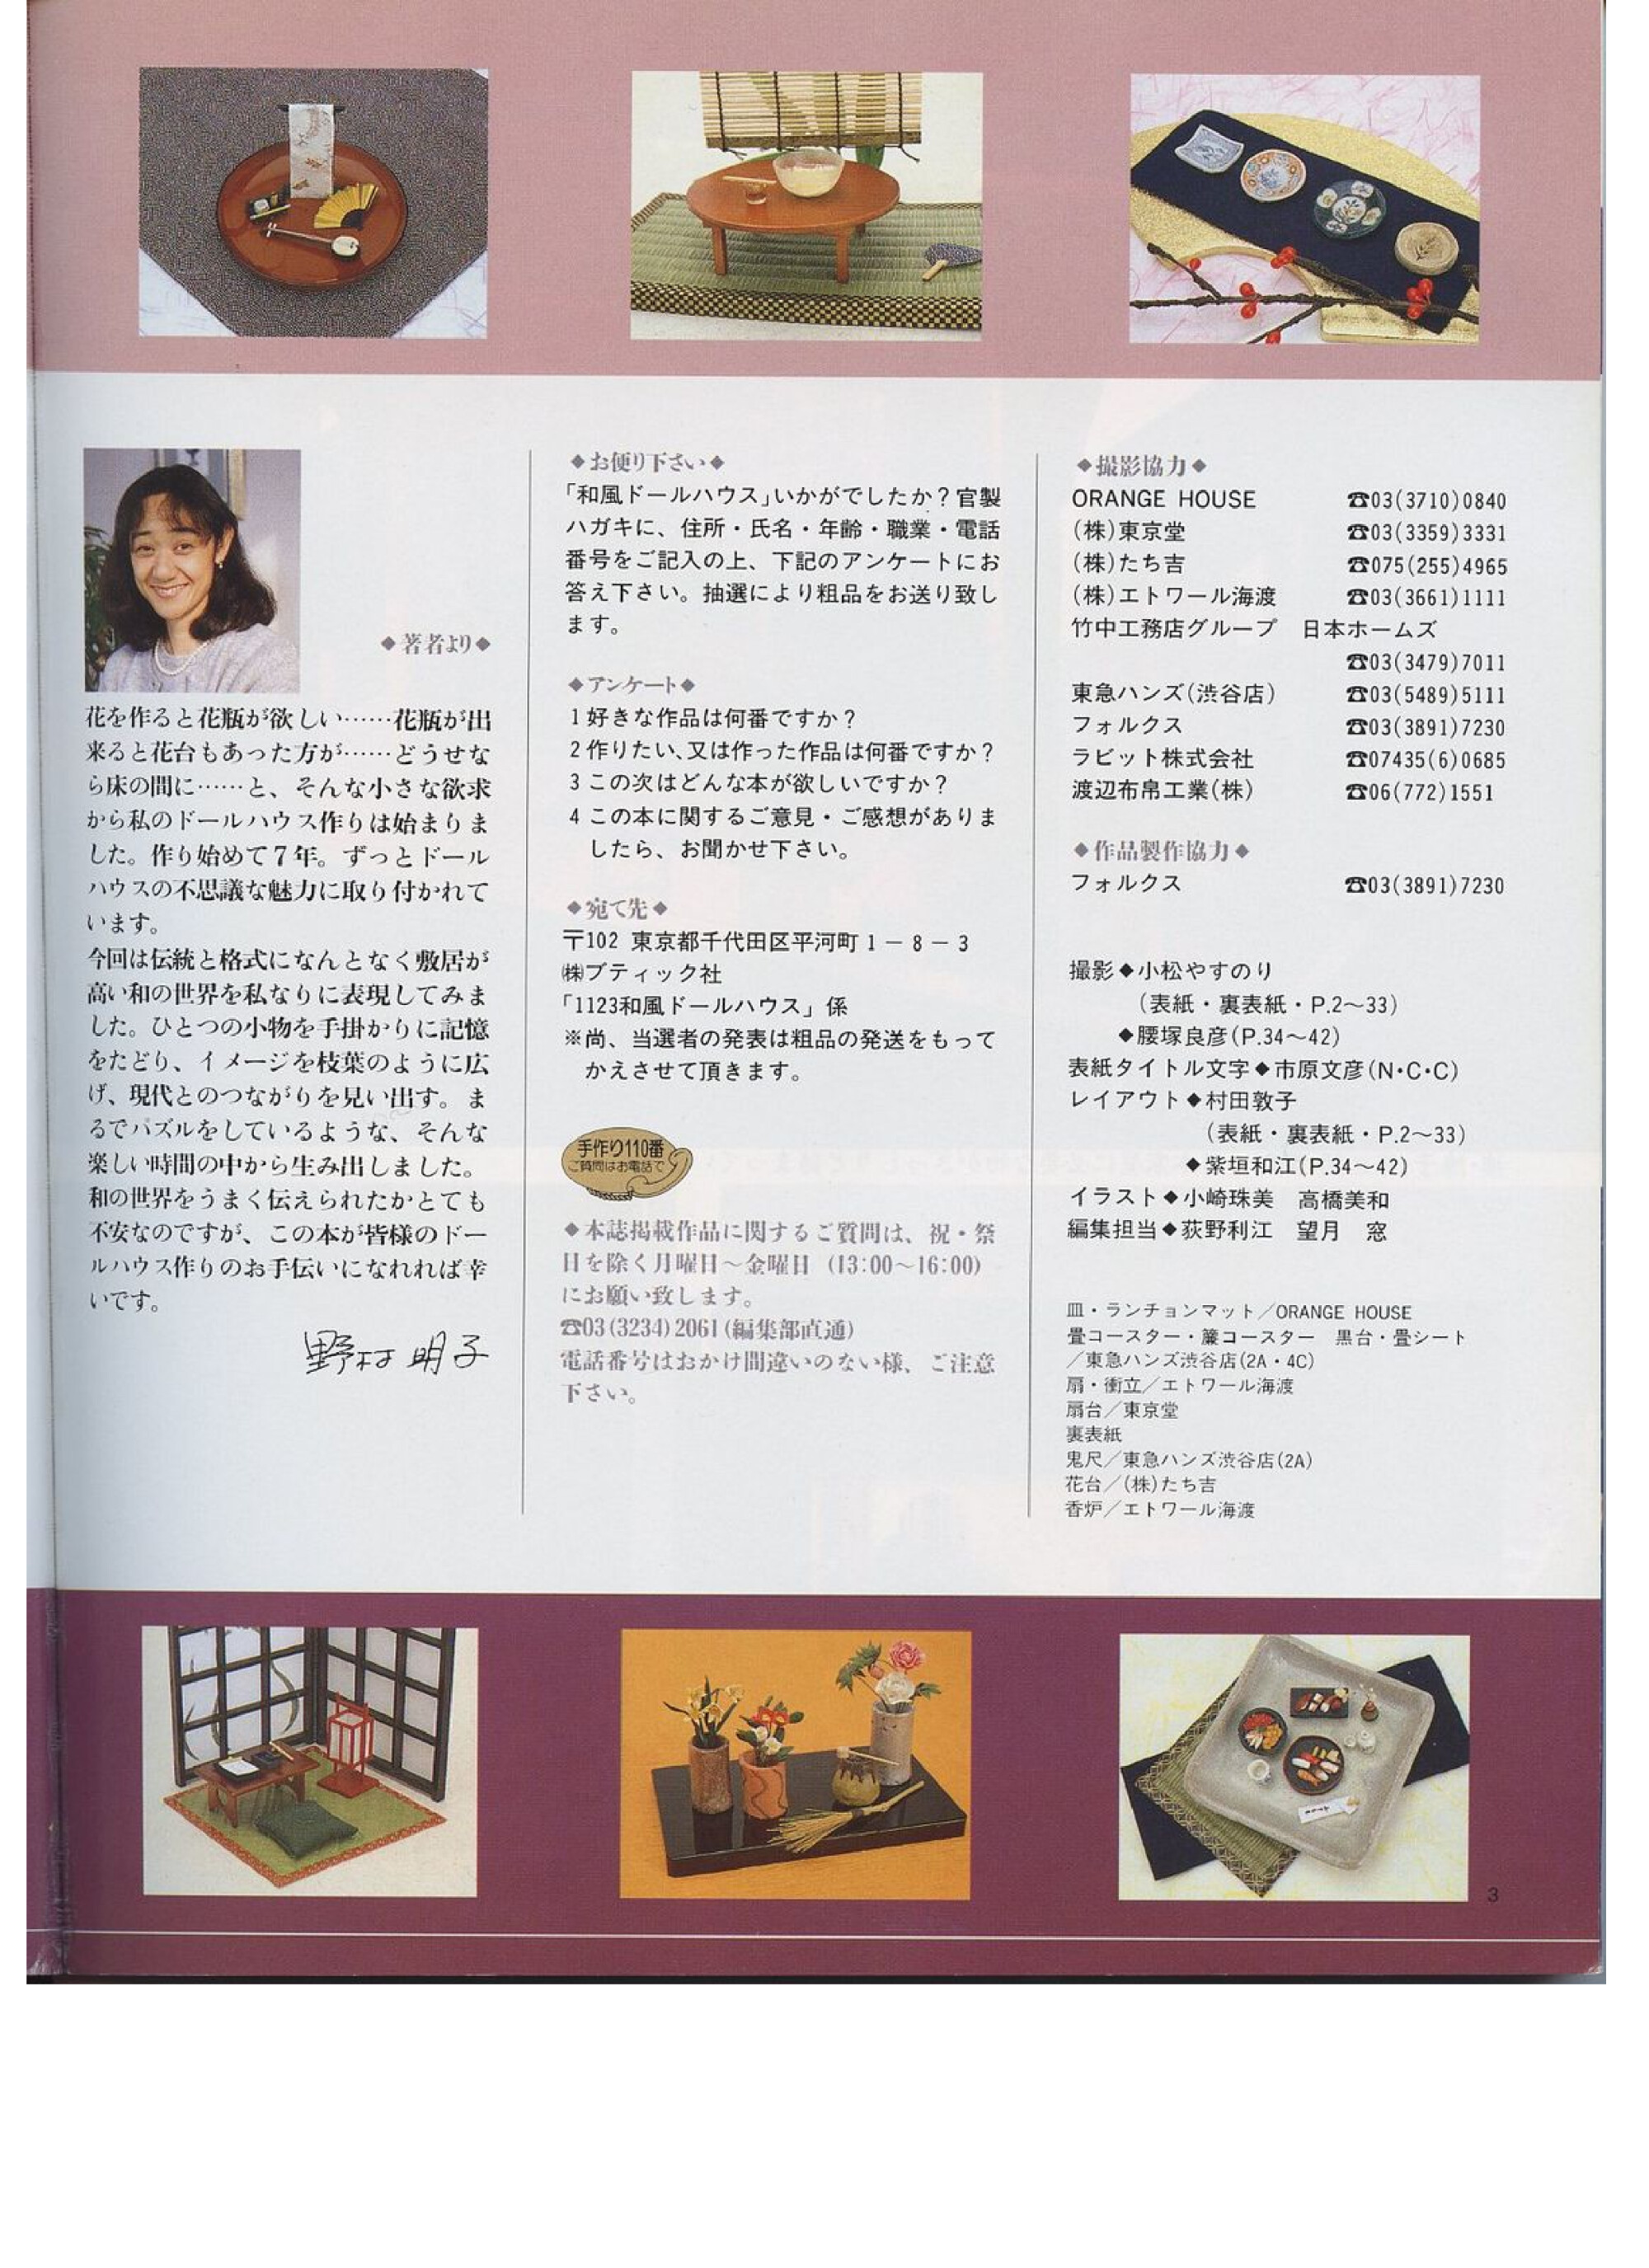 ◆著者より◆
花を作ると花瓶が欲しい……花瓶が出
来ると花台もあった方が……どうせな
ら床の間に……と、そんな小さな欲求
から私のドールハウス作りは始まりま
した。作り始めて7年。ずっとドール
ハウスの不思議な魅力に取り付かれて
います。
今回は伝統と格式になんとなく敷居が
高い和の世界を私なりに表現してみま
した。ひとつの小物を手掛かりに記憶
をたどり、イメージを枝葉のように広
げ、現代とのつながりを見い出す。ま
るでパズルをしているような、そんな
楽しい時間の中から生み出しました。
和の世界をうまく伝えられたかとても
不安なのですが、この本が皆様のドー
ルハウス作りのお手伝いになれれば幸
いです。
野村明子
◆お便り下さい◆
「和風ドールハウス」いかがでしたか？官製
ハガキに、住所・氏名・年齢・職業・電話
番号をご記入の上、下記のアンケートにお
答え下さい。抽選により粗品をお送り致し
ます。
◆アンケート◆
1 好きな作品は何番ですか？
2 作りたい、又は作った作品は何番ですか？
3 この次はどんな本が欲しいですか？
4 この本に関するご意見・ご感想がありま
したら、お聞かせ下さい。
◆宛て先◆
〒102 東京都千代田区平河町1－8－3
㈱ブティック社
「1123和風ドールハウス」係
※尚、当選者の発表は粗品の発送をもって
かえさせて頂きます。
手作り110番
ご質問はお電話で
◆本誌掲載作品に関するご質問は、祝・祭
日を除く月曜日〜金曜日 (13:00〜16:00)
にお願い致します。
☎03(3234)2061(編集部直通)
電話番号はおかけ間違いのない様、ご注意
下さい。
◆撮影協力◆
ORANGE HOUSE ☎03(3710)0840
(株)東京堂 ☎03(3359)3331
(株)たち吉 ☎075(255)4965
(株)エトワール海渡 ☎03(3661)1111
竹中工務店グループ 日本ホームズ
☎03(3479)7011
東急ハンズ(渋谷店) ☎03(5489)5111
フォルクス ☎03(3891)7230
ラビット株式会社 ☎07435(6)0685
渡辺布帛工業(株) ☎06(772)1551
◆作品製作協力◆
フォルクス ☎03(3891)7230
撮影◆小松やすのり
(表紙・裏表紙・P.2〜33)
◆腰塚良彦(P.34〜42)
表紙タイトル文字◆市原文彦(N・C・C)
レイアウト◆村田敦子
(表紙・裏表紙・P.2〜33)
◆紫垣和江(P.34〜42)
イラスト◆小崎珠美 高橋美和
編集担当◆荻野利江 望月 窓
皿・ランチョンマット／ORANGE HOUSE
畳コースター・簾コースター 黒台・畳シート
／東急ハンズ渋谷店(2A・4C)
扇・衝立／エトワール海渡
扇台／東京堂
裏表紙
鬼尺／東急ハンズ渋谷店(2A)
花台／(株)たち吉
香炉／エトワール海渡
3